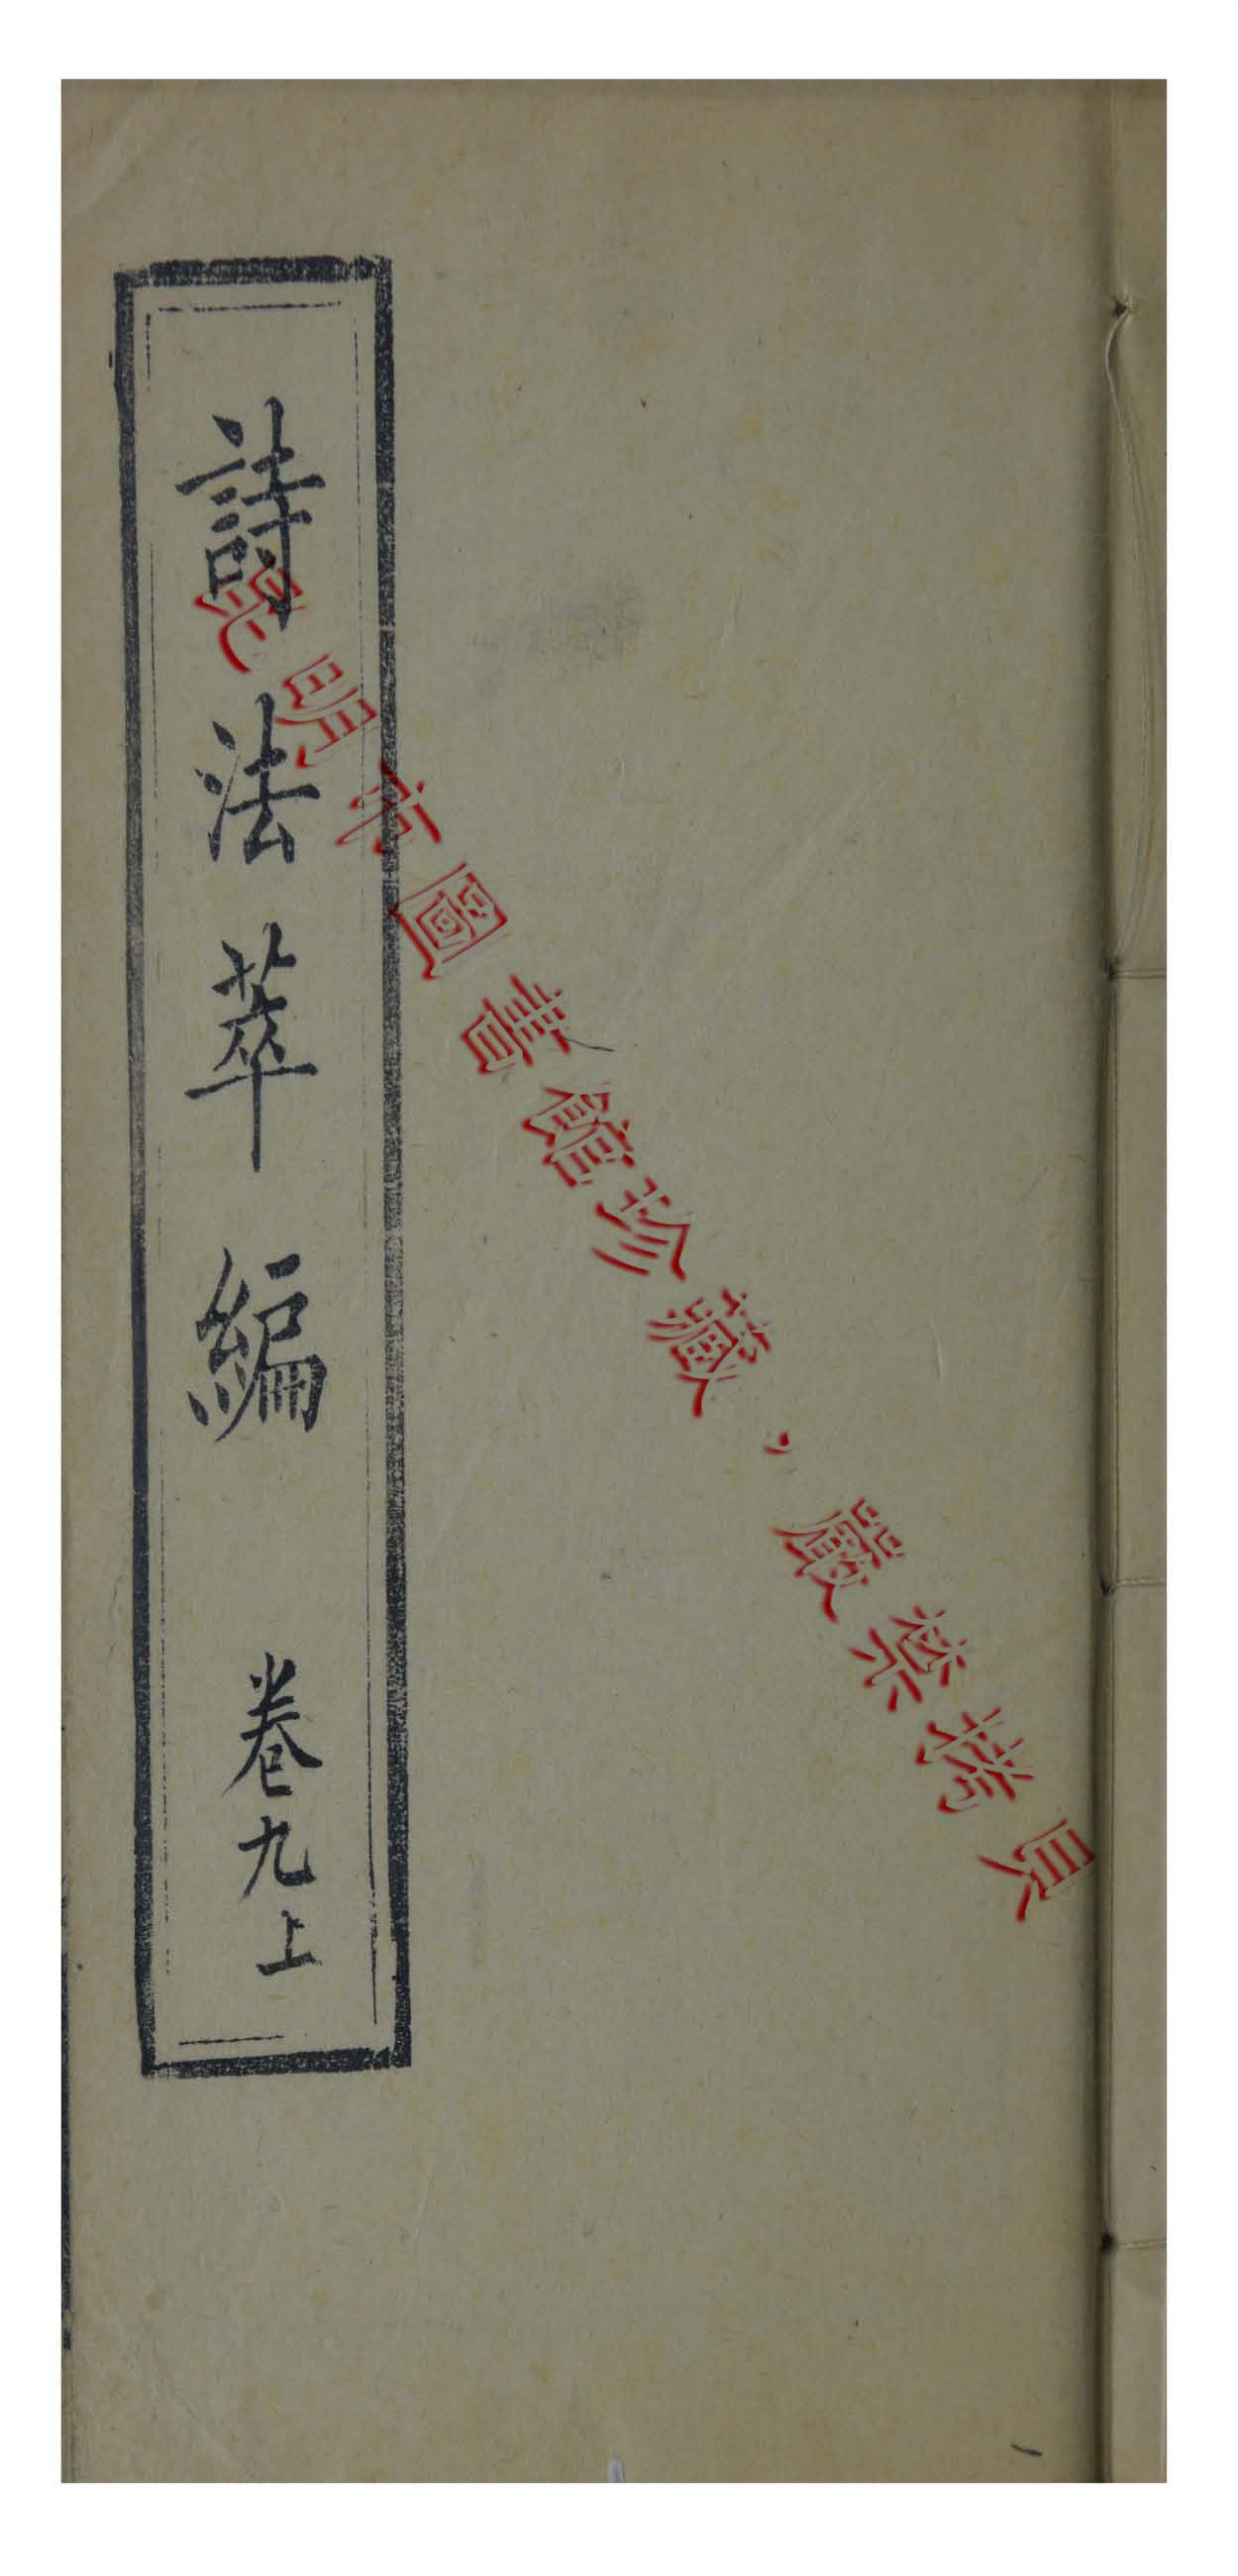 詩法萃編
卷九上
昆明市圖書館珍藏，嚴禁拷貝